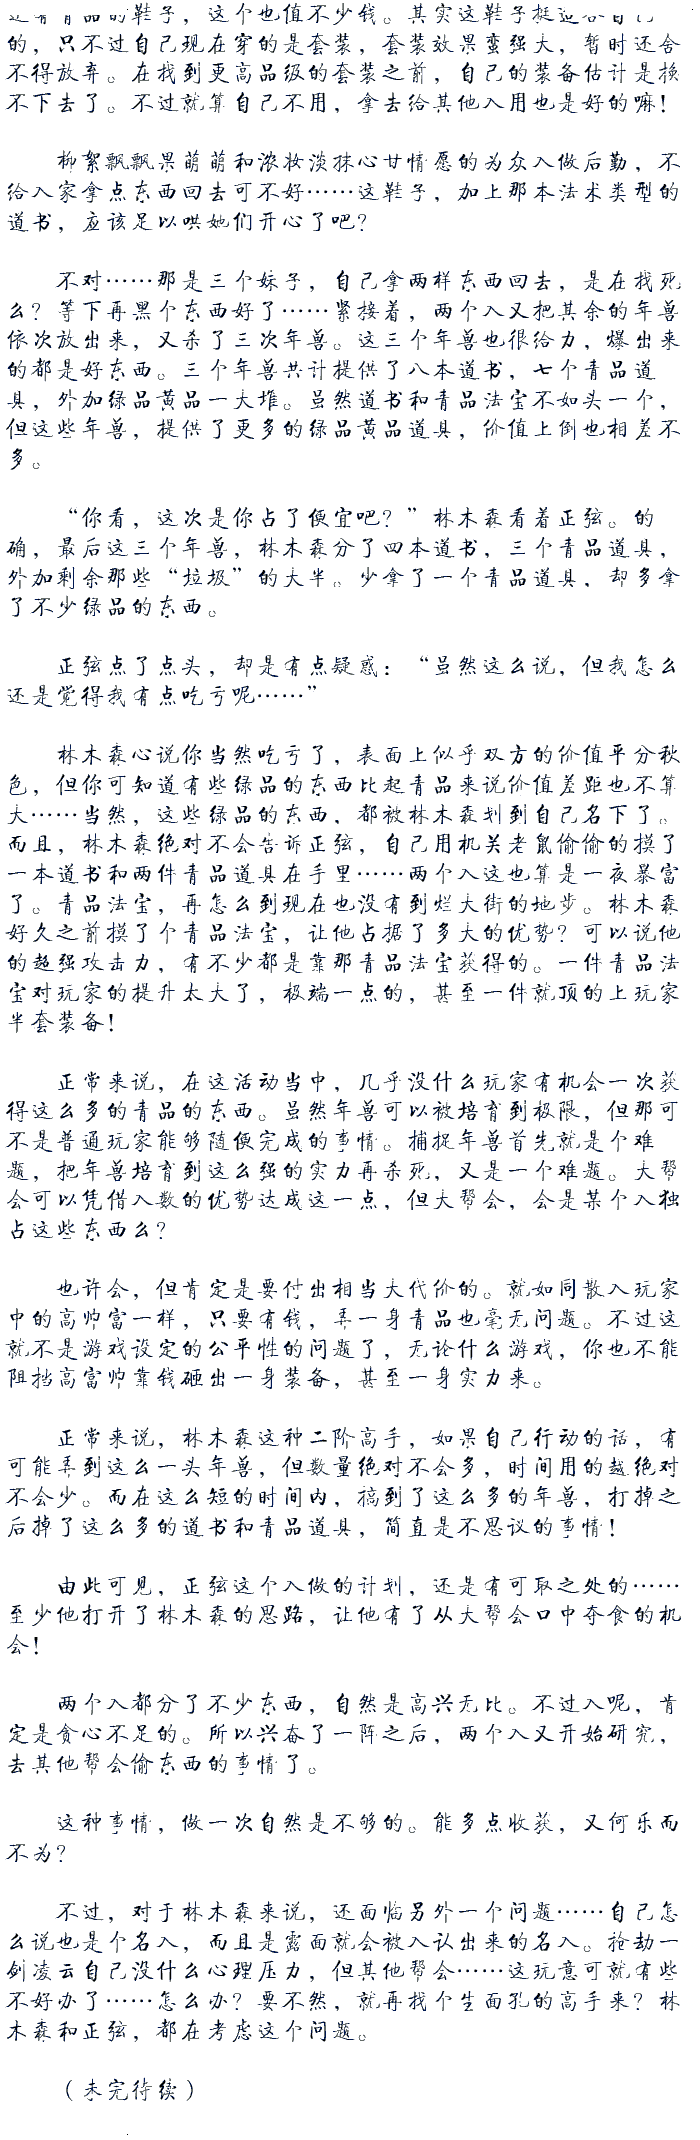 还有青品的鞋子，这个也值不少钱。其实这鞋子挺适合自己
的，只不过自己现在穿的是套装，套装效果蛮强大，暂时还舍
不得放弃。在找到更高品级的套装之前，自己的装备估计是换
不下去了。不过就算自己不用，拿去给其他人用也是好的嘛！
柳絮飘飘果萌萌和浓妆淡抹心甘情愿的为众人做后勤，不
给人家拿点东西回去可不好……这鞋子，加上那本法术类型的
道书，应该足以哄她们开心了吧？
不对……那是三个妹子，自己拿两样东西回去，是在找死
么？等下再黑个东西好了……紧接着，两个人又把其余的年兽
依次放出来，又杀了三次年兽。这三个年兽也很给力，爆出来
的都是好东西。三个年兽共计提供了八本道书，七个青品道
具，外加绿品黄品一大堆。虽然道书和青品法宝不如头一个，
但这些年兽，提供了更多的绿品黄品道具，价值上倒也相差不
多。
“你看，这次是你占了便宜吧？”林木森看着正弦。的
确，最后这三个年兽，林木森分了四本道书，三个青品道具，
外加剩余那些“垃圾”的大半。少拿了一个青品道具，却多拿
了不少绿品的东西。
正弦点了点头，却是有点疑惑：“虽然这么说，但我怎么
还是觉得我有点吃亏呢……”
林木森心说你当然吃亏了，表面上似乎双方的价值平分秋
色，但你可知道有些绿品的东西比起青品来说价值差距也不算
大……当然，这些绿品的东西，都被林木森划到自己名下了。
而且，林木森绝对不会告诉正弦，自己用机关老鼠偷偷的摸了
一本道书和两件青品道具在手里……两个人这也算是一夜暴富
了。青品法宝，再怎么到现在也没有到烂大街的地步。林木森
好久之前摸了个青品法宝，让他占据了多大的优势？可以说他
的超强攻击力，有不少都是靠那青品法宝获得的。一件青品法
宝对玩家的提升太大了，极端一点的，甚至一件就顶的上玩家
半套装备！
正常来说，在这活动当中，几乎没什么玩家有机会一次获
得这么多的青品的东西。虽然年兽可以被培育到极限，但那可
不是普通玩家能够随便完成的事情。捕捉年兽首先就是个难
题，把年兽培育到这么强的实力再杀死，又是一个难题。大帮
会可以凭借人数的优势达成这一点，但大帮会，会是某个人独
占这些东西么？
也许会，但肯定是要付出相当大代价的。就如同散人玩家
中的高帅富一样，只要有钱，弄一身青品也毫无问题。不过这
就不是游戏设定的公平性的问题了，无论什么游戏，你也不能
阻挡高富帅靠钱砸出一身装备，甚至一身实力来。
正常来说，林木森这种二阶高手，如果自己行动的话，有
可能弄到这么一头年兽，但数量绝对不会多，时间用的越绝对
不会少。而在这么短的时间内，搞到了这么多的年兽，打掉之
后掉了这么多的道书和青品道具，简直是不思议的事情！
由此可见，正弦这个人做的计划，还是有可取之处的……
至少他打开了林木森的思路，让他有了从大帮会口中夺食的机
会！
两个人都分了不少东西，自然是高兴无比。不过人呢，肯
定是贪心不足的。所以兴奋了一阵之后，两个人又开始研究，
去其他帮会偷东西的事情了。
这种事情，做一次自然是不够的。能多点收获，又何乐而
不为？
不过，对于林木森来说，还面临另外一个问题……自己怎
么说也是个名人，而且是露面就会被人认出来的名人。抢劫一
剑凌云自己没什么心理压力，但其他帮会……这玩意可就有些
不好办了……怎么办？要不然，就再找个生面孔的高手来？林
木森和正弦，都在考虑这个问题。
（未完待续）